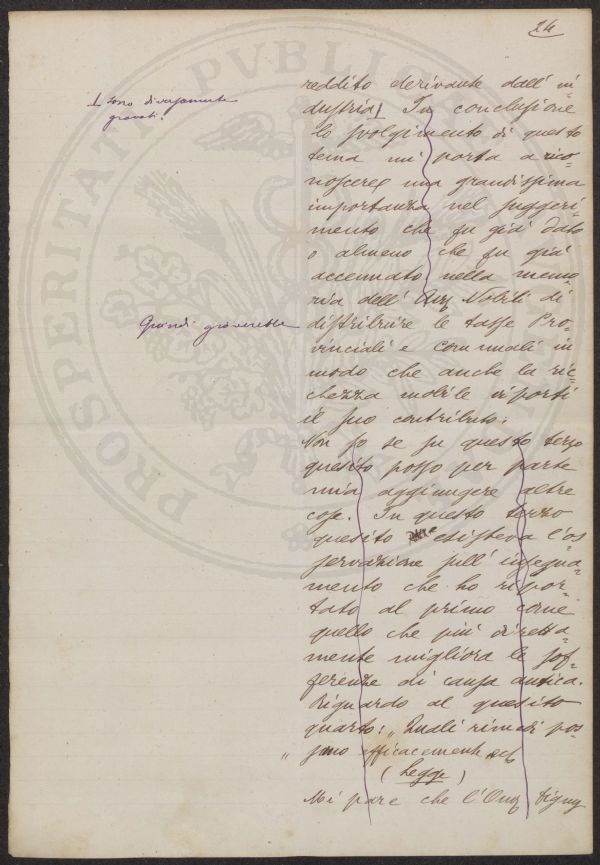 24
reddito derivante dall' in-
dustria. In conclusione
lo svolgimento di questo
tema mi porta a rico-
noscere una grandissima
importanza nel suggeri-
mento che fu già dato
o almeno che fu già
accennato nella memo-
ria dell' On. Nobili di
distribuire le tasse Pro-
vinciali e comunali in
modo che anche la ric-
chezza mobile riporti
il suo contributo.
Non so se su questo terzo
quesito posso per parte
mia aggiungere altre
cose. In questo terzo
quesito esisteva l'os
servazione sull' insegna-
mento che ho ripor-
tato al primo come
quello che più diretta-
mente migliora le sof-
ferenze di causa antica.
Riguardo al quesito
quarto: „Quali rimedi pos-
„ sano efficacemente ecc
(Legge)
Mi pare che l'On.
sono diversamente
gravati.
Quindi graverebbe
PROSPERITATI PVBLICAE